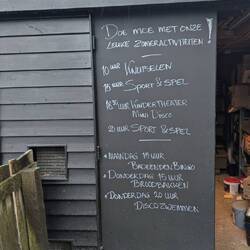 Doe mee met onze
leuke zomeractiviteiten!
10 uur Knutselen
15 uur Sport & Spel
18:30 uur Kindertheater
Mini Disco
20 uur Sport & Spel
• Maandag 15 uur
Badeenden Bingo
• Donderdag 15 uur
Broodbakken
• Donderdag 20 uur
Discozwemmen